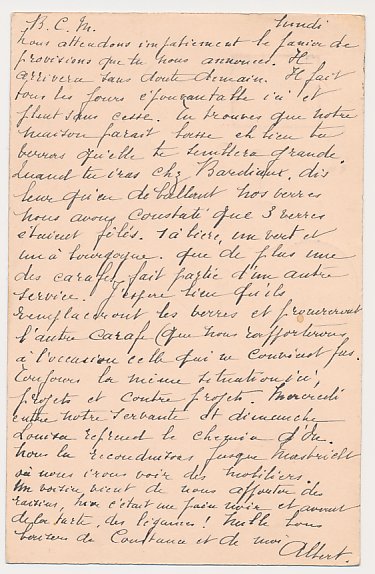 B. C. M. Lundi
nous attendons impatiemment le panier de
provisions que tu nous annonces. Il
arrivera sans doute demain. Il fait
tous les jours épouvantable ici et
pleut sans cesse. Tu trouves que notre
maison parait basse eh bien tu
verras qu'elle te semblera grande.
Quand tu iras chez Bardiaux, dis
leur qu'en deballant nos verres
nous avons constaté que 3 verres
étaient fêlés. 1 à bière, un vert et
un à bourgogne. que de plus une
des carafes fait partie d'un autre
service. J'espère bien qu'ils
remplaceront les verres et procureront
l'autre carafe (que nous rapporterons
à l'occasion celle qui ne convient pas.
Toujours la même situation ici,
projets et contre projets. Mercredi
entre notre servante et dimanche
Louisa reprend le chemin d'
nous la reconduisons jusque Mastricht
où nous irons voir des mobiliers.
Un voisin vient de nous apporter des
raisins, hier c'était un pain noir et avant
de la tarte, des légumes! Mille bons
baisers de Constance et de moi
Albert.